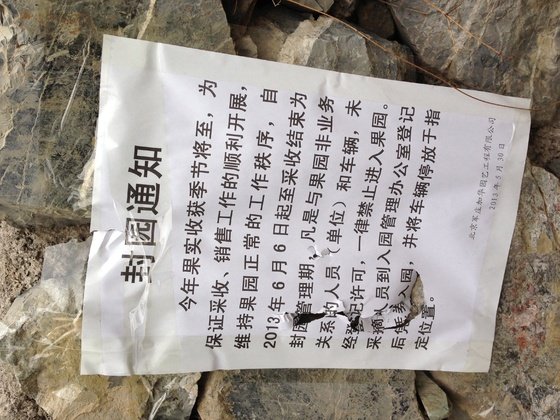 封园通知
今年果实收获季节将至，为
保证采收、销售工作的顺利开展，
维持果园正常的工作秩序，自
2013年6月6日起至采收结束为
封园管理期，凡是与果园非业务
关系的人员（单位）和车辆，未
经登记许可，一律禁止进入果园。
采摘员到入园管理办公室登记
后券入园，并将车辆停放于指
定位置。
北京军庄加华园艺工程有限公司
2013年5月30日